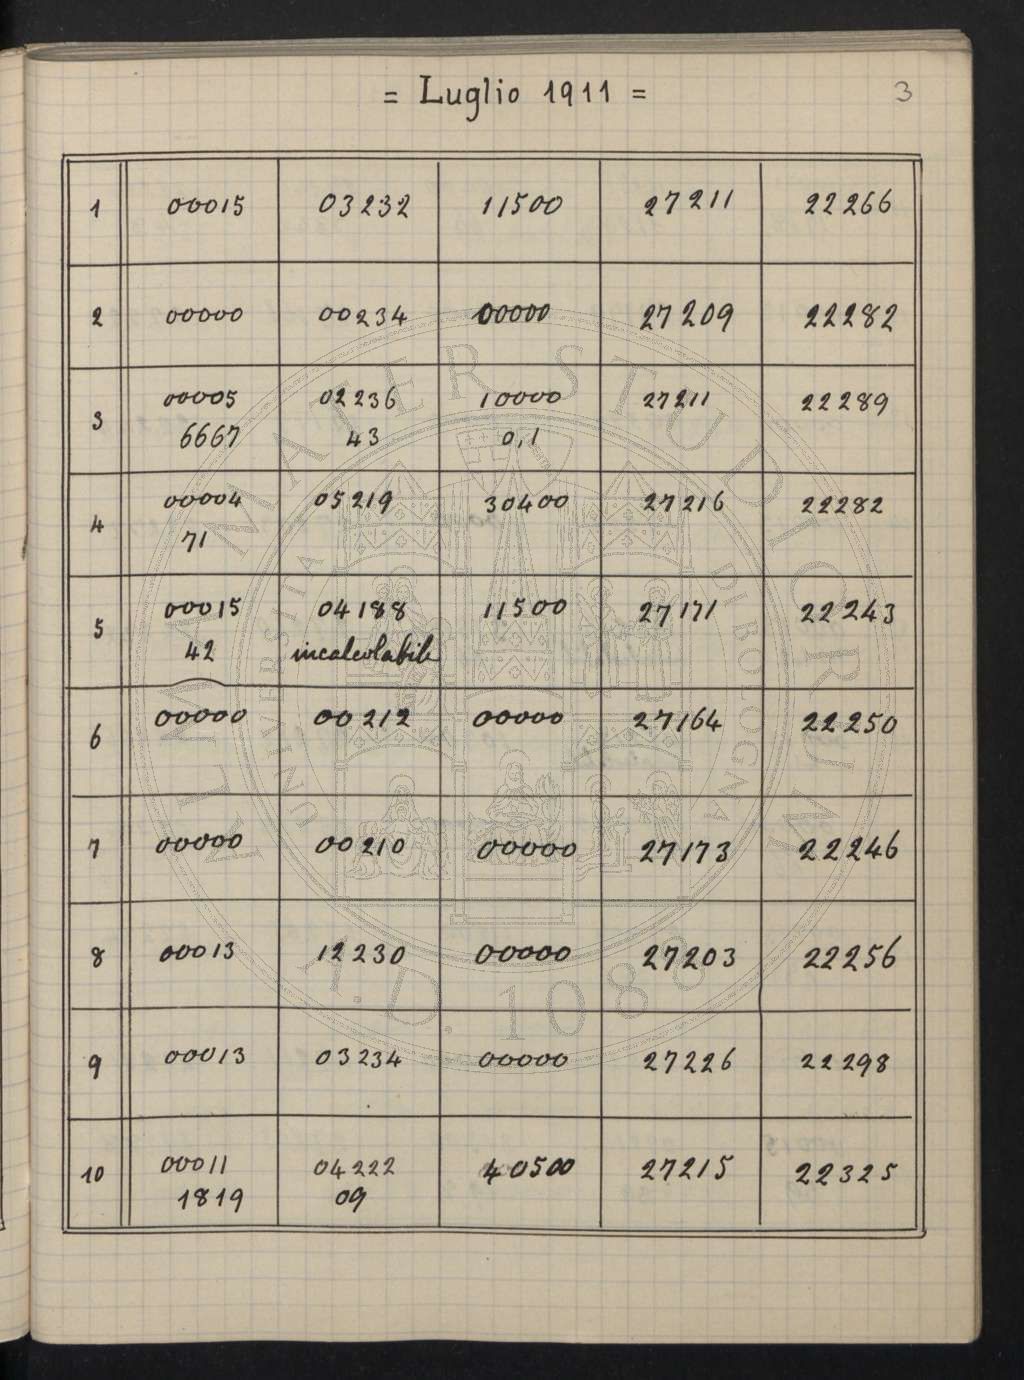 = Luglio 1911 = 3
1 00015 03232 11500 27211 22266
2 00000 00234 00000 27209 22282
3 00005 02236 10000 27211 22289
6667 43 0,1
4 00004 05219 30400 27216 22282
71
5 00015 04188 11500 27171 22243
42 incalcolabile
6 00000 00212 00000 27164 22250
7 00000 00210 00000 27173 22246
8 00013 12230 00000 27203 22256
9 00013 03234 00000 27226 22298
10 00011 04222 40500 27215 22325
1819 09
ALMA MATER STUDIORUM
UNIVERSITÀ DI BOLOGNA
A.D. 1088